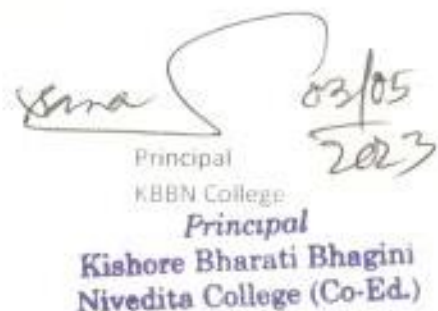 03/05
2023
Principal
KBBN College
Principal
Kishore Bharati Bhagini
Nivedita College (Co-Ed.)